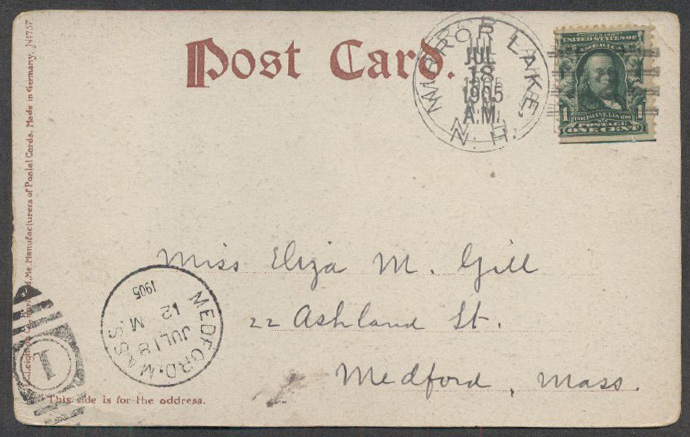 Post Card.
MIRROR LAKE,
JUL
18
1905
A.M.
N. H.
UNITED STATES OF
AMERICA
1 1
POSTAGE
ONE CENT
Miss Eliza M. Gill
22 Ashland St.
Medford, Mass.
MEDFORD, MASS
JUL 18
12 M
1905
1
Me. Manufacturers of Postal Cards. Made in Germany. No 757
This side is for the address.